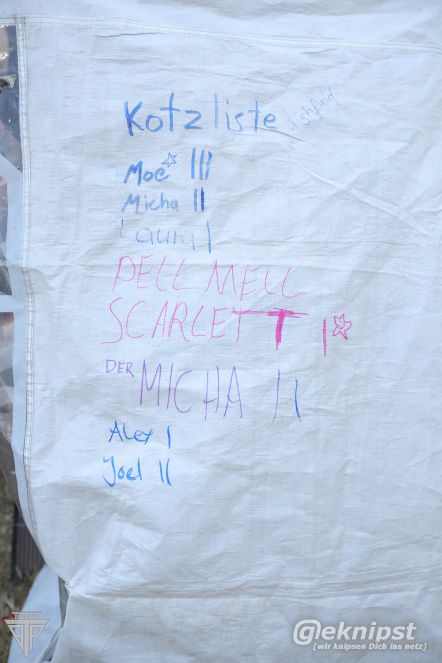 Kotzliste
Moe III
Micha II
Laura I
DELL MELL
SCARLETT I
DER MICHA II
Alex I
Joel II
@eknipst
[wir knipsen Dich ins netz]